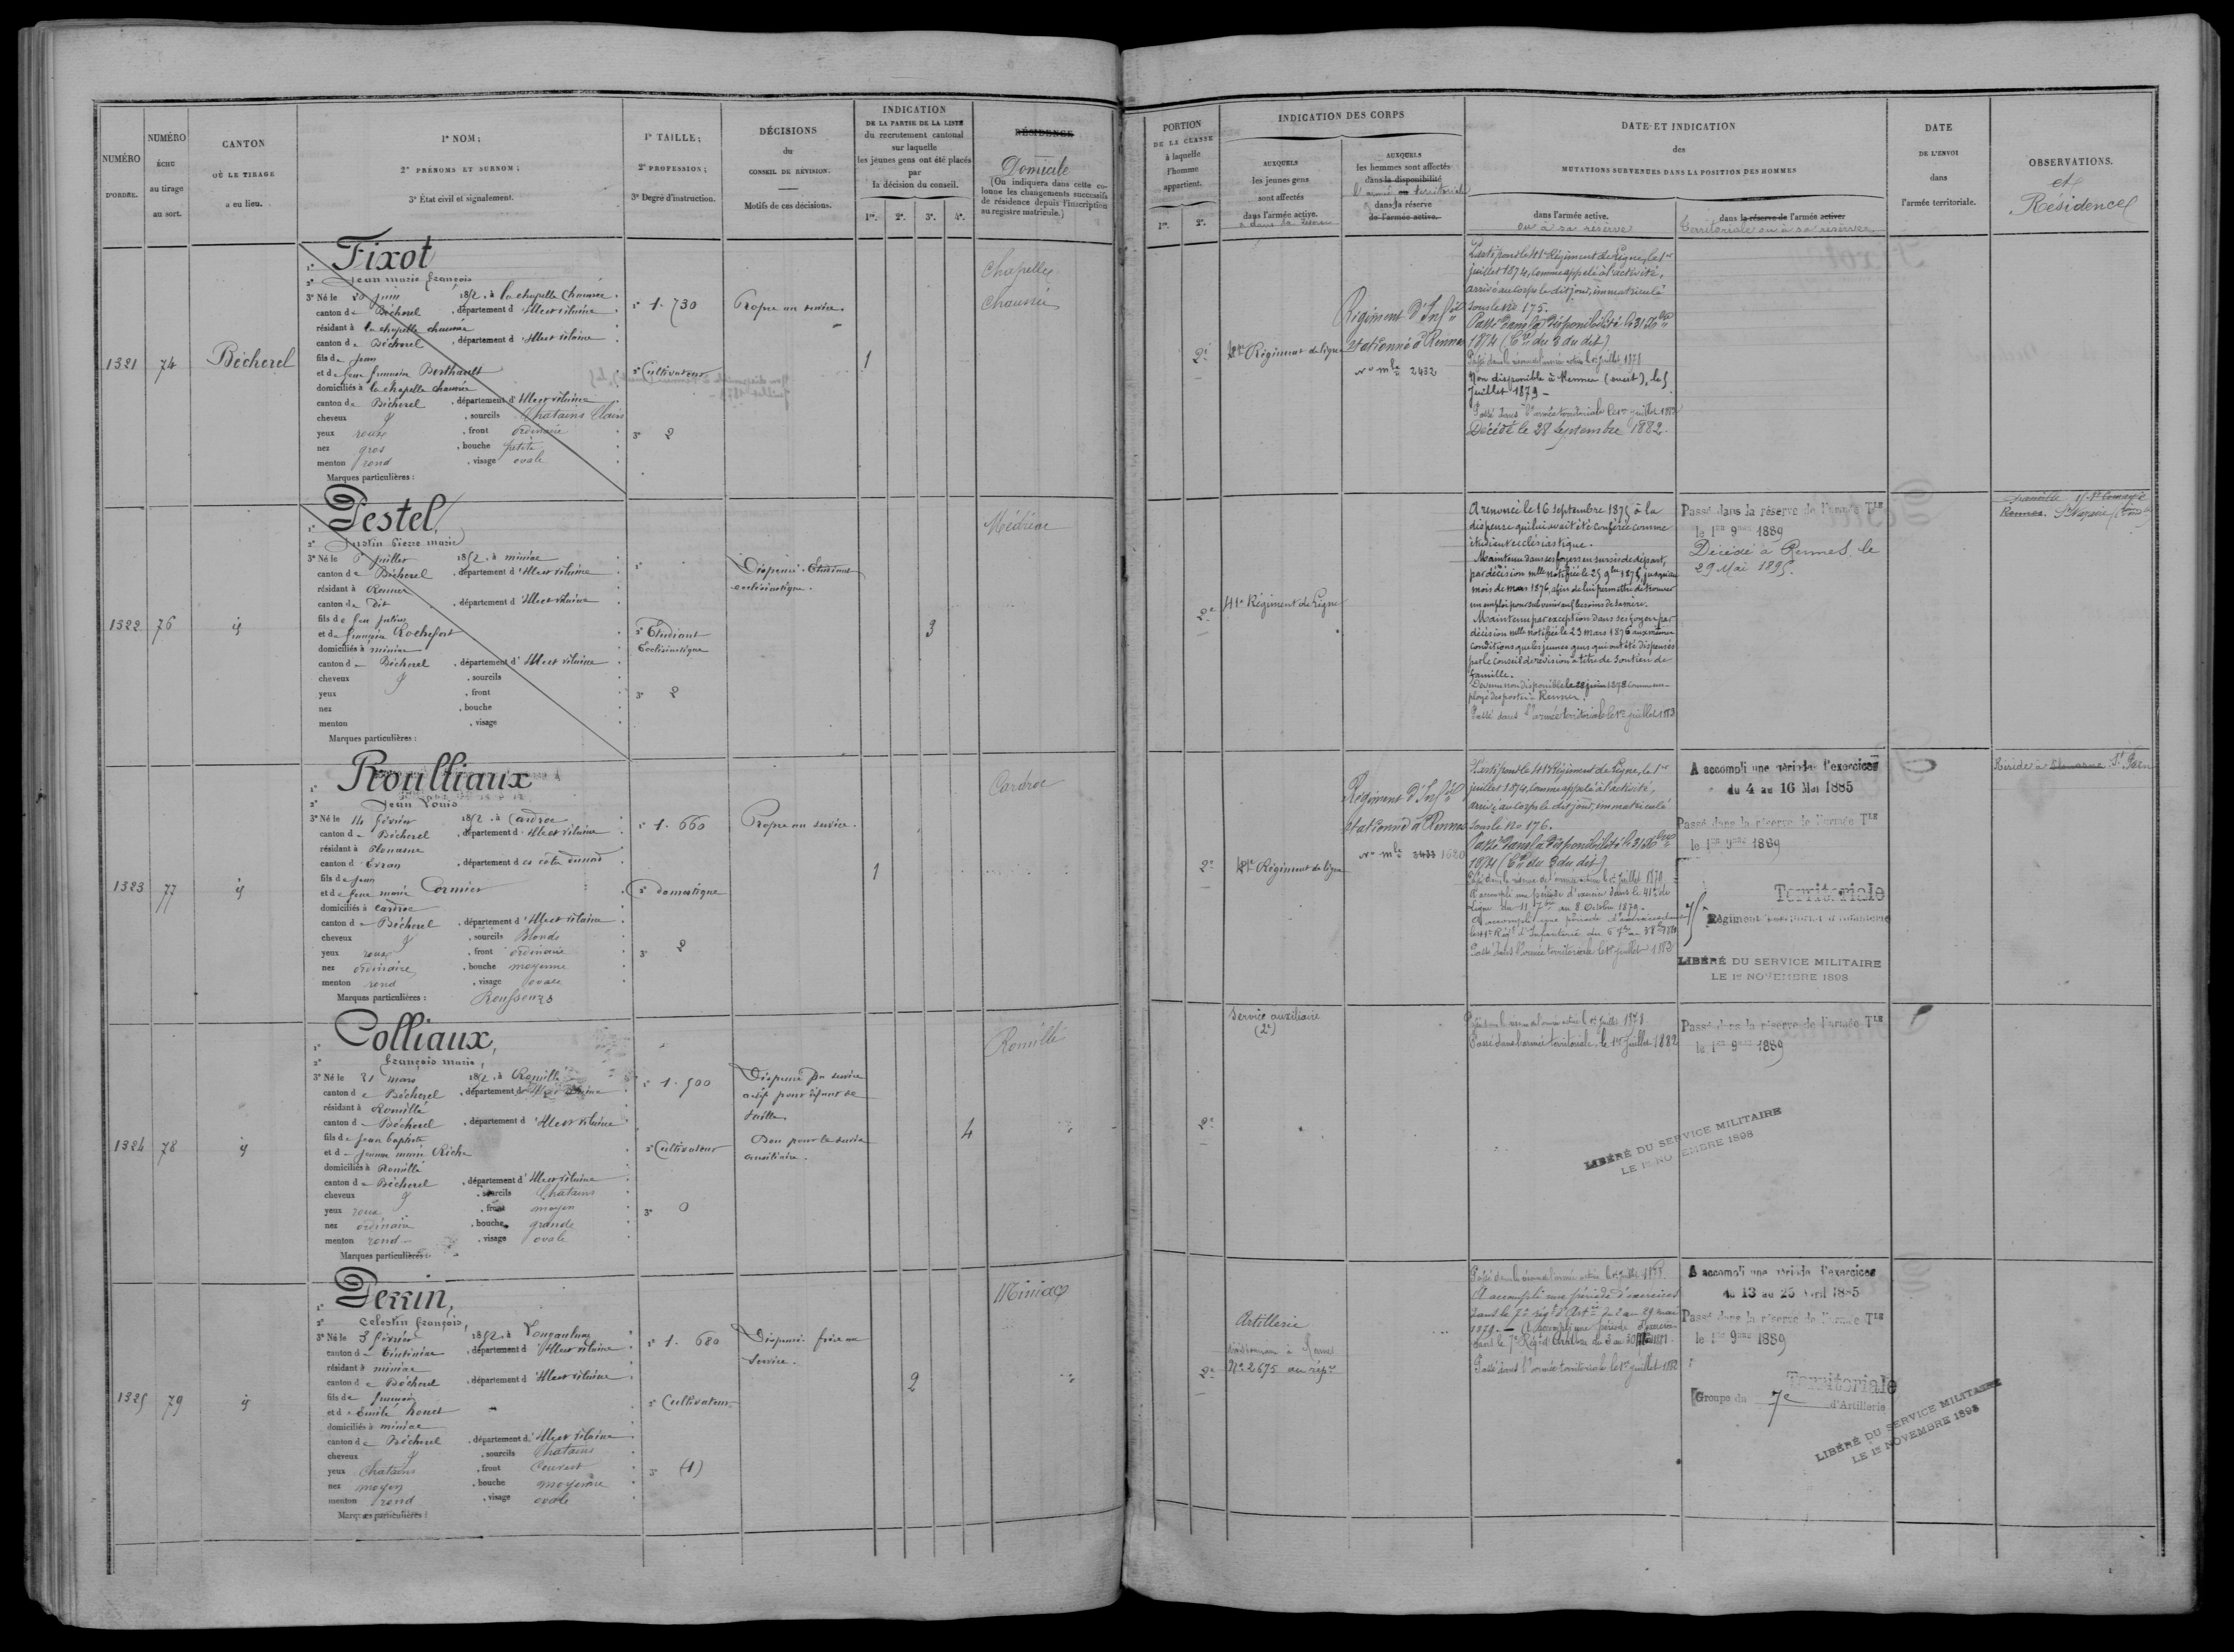 NUMÉRO
D'ORDRE.
NUMÉRO
ÉCHU
au tirage
au sort.
CANTON
OÙ LE TIRAGE
a eu lieu.
1° NOM;
2° PRÉNOMS ET SURNOM;
3° État civil et signalement.
1° TAILLE;
2° PROFESSION;
3° Degré d'instruction.
DÉCISIONS
du
CONSEIL DE RÉVISION.
Motifs de ces décisions.
INDICATION
DE LA PARTIE DE LA LISTE
du recrutement cantonal
sur laquelle
les jeunes gens ont été placés
par
la décision du conseil.
1re. 2e. 3e. 4e.
RÉSIDENCE
Domicile
(On indiquera dans cette co-
lonne les changements successifs
de résidence depuis l'inscription
au registre matricule.)
1321
74
Bécherel
1° Fixot
2° Jean marie françois
3° Né le 20 juin 1852, à la chapelle Chaussée
canton de Bécherel, département d'Ille et vilaine
résidant à la chapelle chaussée
canton de Bécherel, département d'Ille et vilaine
fils de Jean
et de feue françoise Berthault
domiciliés à la chapelle chaussée
canton de Bécherel, département d'Ille et vilaine
cheveux, sourcils Chatains Clairs
yeux roux, front ordinaire
nez gros, bouche petite
menton rond, visage ovale
Marques particulières :
1° 1.730
2° Cultivateur
3° 2
Propre au service.
1
Chapelle
Chaussée
1322
76
id
1° Pestel
2° Justin Pierre marie
3° Né le 6 juillet 1852, à miniac
canton de Bécherel, département d'Ille et vilaine
résidant à Rennes
canton de dit, département d'Ille et vilaine
fils de feu julien
et de françoise Rochefort
domiciliés à miniac
canton de Bécherel, département d'Ille et vilaine
cheveux, sourcils
yeux, front
nez, bouche
menton, visage
Marques particulières :
2° Etudiant
Ecclésiastique
3° 2
Dispensé. Etudiant
ecclésiastique.
3
1323
77
id
1° Roulliaux
2° Jean Louis
3° Né le 14 février 1852, à Cardroc
canton de Bécherel, département d'Ille et vilaine
résidant à Plouasne
canton d'Evran, département des côtes du nord
fils de Jean
et de feue marie Cormier
domiciliés à Cardroc
canton de Bécherel, département d'Ille et vilaine
cheveux, sourcils Blonds
yeux roux, front ordinaire
nez ordinaire, bouche moyenne
menton rond, visage ovale
Marques particulières : Rousseurs
1° 1.660
2° Domestique
3° 2
Propre au service.
1
Cardroc
1324
78
id
1° Colliaux,
2° françois marie,
3° Né le 21 mars 1852, à Romillé
canton de Bécherel, département d'Ille et vilaine
résidant à Romillé
canton de Bécherel, département d'Ille et vilaine
fils de Jean baptiste
et de Jeanne marie Riche
domiciliés à Romillé
canton de Bécherel, département d'Ille et vilaine
cheveux, sourcils Chatains
yeux roux, front moyen
nez ordinaire, bouche grande
menton rond, visage ovale
Marques particulières :
1° 1.500
2° Cultivateur
3° 0
Dispensé du service
actif pour défaut de
taille.
Bon pour le service
auxiliaire.
4
Romillé
1325
79
id
1° Perrin,
2° Celestin françois,
3° Né le 3 février 1852, à Longaulnay
canton de Tinténiac, département d'Ille et vilaine
résidant à miniac
canton de Bécherel, département d'Ille et vilaine
fils de françois
domiciliés à miniac
canton de Bécherel, département d'Ille et vilaine
cheveux, sourcils Chatains
yeux Chatains, front Couvert
nez moyen, bouche moyenne
menton rond, visage ovale
Marques particulières :
1° 1.680
2° Cultivateur
3° (1)
Dispensé. frère au
Service.
2
Miniac
PORTION
DE LA CLASSE
à laquelle
l'homme
appartient.
1re. 2e.
INDICATION DES CORPS
AUXQUELS
les jeunes gens
sont affectés
dans l'armée active.
AUXQUELS
les hommes sont affectés
dans la disponibilité
l'armée territoriale
dans la réserve
de l'armée active.
DATE ET INDICATION
des
MUTATIONS SURVENUES DANS LA POSITION DES HOMMES
dans l'armée active.
ou à sa réserve
dans la réserve de l'armée active
territoriale ou à sa réserve
DATE
DE L'ENVOI
dans
l'armée territoriale.
OBSERVATIONS.
et
Résidence
2e
41e Régiment de ligne
Régiment d'Inf
stationné à Rennes
No mle 2432
Parti pour le 41e Régiment de Ligne, le 1er
juillet 1874, comme appelé à l'activité,
arrivé au corps le dit jour, immatriculé
sous le No 175.
Passé dans la disponibilité le 31 Xbre
1874 (Cre du 3 du dit)
Passé dans la réserve de l'armée active le 1er juillet 1878
Non disponible à Rennes (ouest), le 5
Juillet 1879 -
Passé dans l'armée territoriale le 1er juillet
Décédé le 28 Septembre 1882.
2e
41e Régiment de Ligne
A renoncé le 16 septembre 1875 à la
dispense qui lui avait été conférée comme
étudiant ecclésiastique.
Maintenu dans ses foyers en sursis de départ,
par décision mlle notifiée le 25 9bre 1875, jusqu'au
mois de mars 1876, afin de lui permettre de trouver
un emploi pour subvenir aux besoins de sa mère.
Maintenu par exception dans ses foyers par
décision mlle notifiée le 23 mars 1876 aux mêmes
conditions que les jeunes gens qui ont été dispensés
par le conseil de révision à titre de soutien de
famille.
Devenu non disponible le 28 juin 1878 comme em-
ployé des postes à Rennes.
Passé dans l'armée territoriale le 1er juillet 1883
Passé dans la réserve de l'armée Tle
le 1er 9bre 1889
Décédé à Rennes le
29 Mai 1895.
Rennes.
2e
41e Régiment de ligne
Régiment d'Inf
stationné à Rennes
No mle 2433 1620
Parti pour le 41e Régiment de Ligne, le 1er
juillet 1874, comme appelé à l'activité,
arrivé au corps le dit jour, immatriculé
sous le No 176.
Passé dans la disponibilité le 31 Xbre
1874 (Cre du 3 du dit)
Passé dans la réserve de l'armée active le 1er juillet
A accompli une période d'exercices dans le 41e de
Ligne du 11 7bre au 8 Octobre 1879.
A accompli une période d'exercices dans
le 41e Régt d'Infanterie du
Passé dans l'armée territoriale le 1er juillet 1883
A accompli une période d'exercices
du 4 au 16 Mai 1885
Passé dans la réserve de l'armée Tle
le 1er 9bre 1889
Territoriale
75e Régiment territorial d'Infanterie
LIBÉRÉ DU SERVICE MILITAIRE
LE 1er NOVEMBRE 1898
Réside à Plouasne St Pern
2e
Service auxiliaire
(2e)
Passé dans la réserve de l'armée active le 1er Juillet 1878
Passé dans l'armée territoriale, le 1er juillet 1882
Passé dans la réserve de l'armée Tle
le 1er 9bre 1889
LIBÉRÉ DU SERVICE MILITAIRE
LE 1er NOVEMBRE 1898
2e
Artillerie
No 2675 au rép
Passé dans la réserve de l'armée active le 1er juillet
A accompli une période d'exercices
dans le 7e régt d'Artie du 2 au 29 mai
1879. — A accompli une période d'exercices
Passé dans l'armée territoriale le 1er juillet 1882
A accompli une période d'exercices
du 13 au 25 Avril 1885
Passé dans la réserve de l'armée Tle
le 1er 9bre 1889
Territoriale
Groupe du 7e d'Artillerie
LIBÉRÉ DU SERVICE MILITAIRE
LE 1er NOVEMBRE 1898